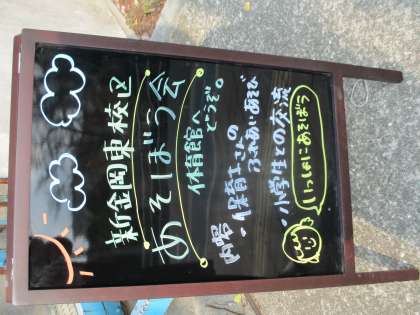 新金岡東校区
あそぼう会
体育館へ
どうぞ。
内容
・保育士さんの
ふれあいあそび
・小学生との交流
いっしょにあそぼう